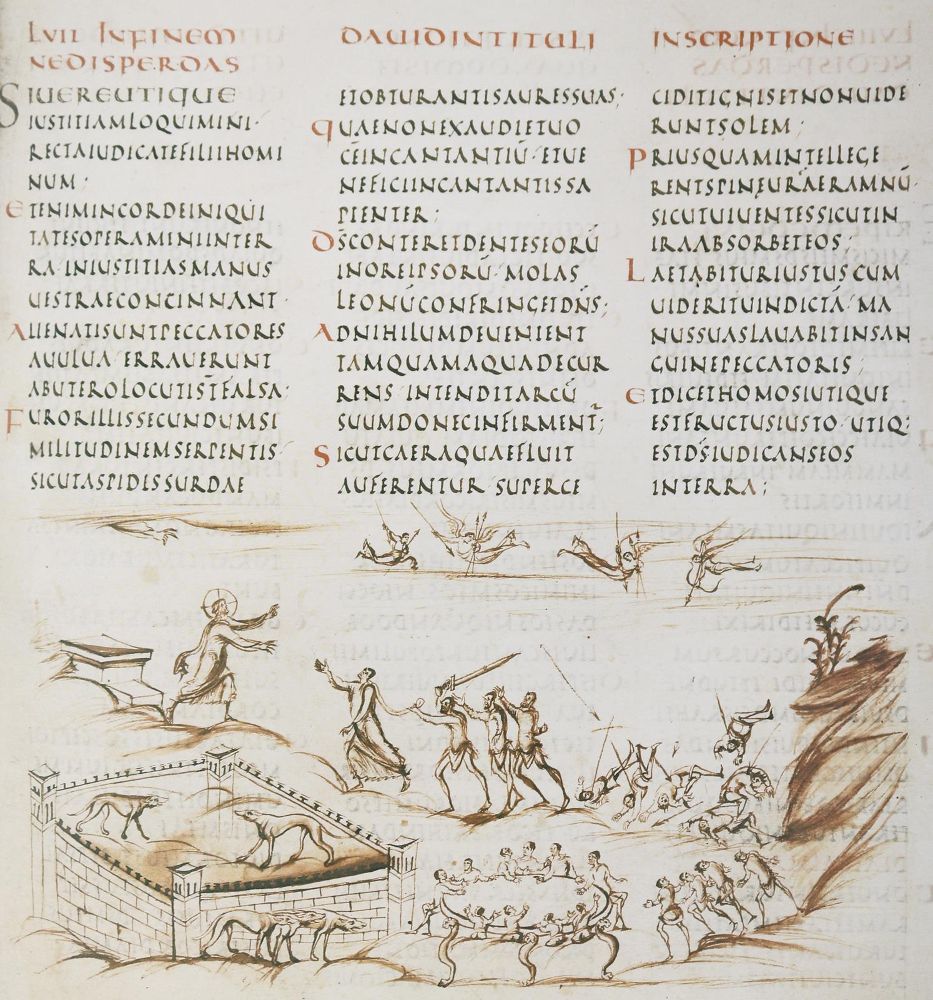 LVII INFINEM DAVIDINTITULI INSCRIPTIONE
NEDISPERDAS
SIUEREUTIQUE
IUSTITIAMLOQUIMINI·
RECTAIUDICATEFILIIHOMI
NUM;
ETENIMINCORDEINIQUI
TATESOPERAMINIINTER
RA·INIUSTITIASMANUS
UESTRAECONCINNANT·
ALIENATISUNTPECCATORES
AUULUA·ERRAUERUNT
ABUTEROLOCUTIST̅FALSA·
FURORILLISSECUNDUMSI
MILITUDINEMSERPENTIS·
SICUTASPIDISSURDAE
ETOBTURANTISAURESSUAS;
QUAENONEXAUDIETUO
CĒINCANTANTIŪ·ETUE
NEFICIINCANTANTISSA
PIENTER;
DS̅CONTERETDENTESEORŪ
INOREIPSORŪ·MOLAS
LEONŪCONFRINGETDN̅S;
ADNIHILUMDEUENIENT
TAMQUAMAQUADECUR
RENS·INTENDITARCŪ
SUUMDONECINFIRMENT̅;
SICUTCAERAQUAEFLUIT
AUFERENTUR·SUPERCE
CIDITIGNISETNONUIDE
RUNTSOLEM;
PRIUSQUAMINTELLEGE
RENTSPINEURAERAMNŪ·
SICUTUIUENTESSICUTIN
IRAABSORBETEOS;
LAETABITURIUSTUSCUM
UIDERITUINDICTĀ·MA
NUSSUASLAUABITINSAN
GUINEPECCATORIS;
ETDICETHOMOSIUTIQUE
ESTFRUCTUSIUSTO·UTIQ:
ESTDS̅IUDICANSEOS
INTERRA;